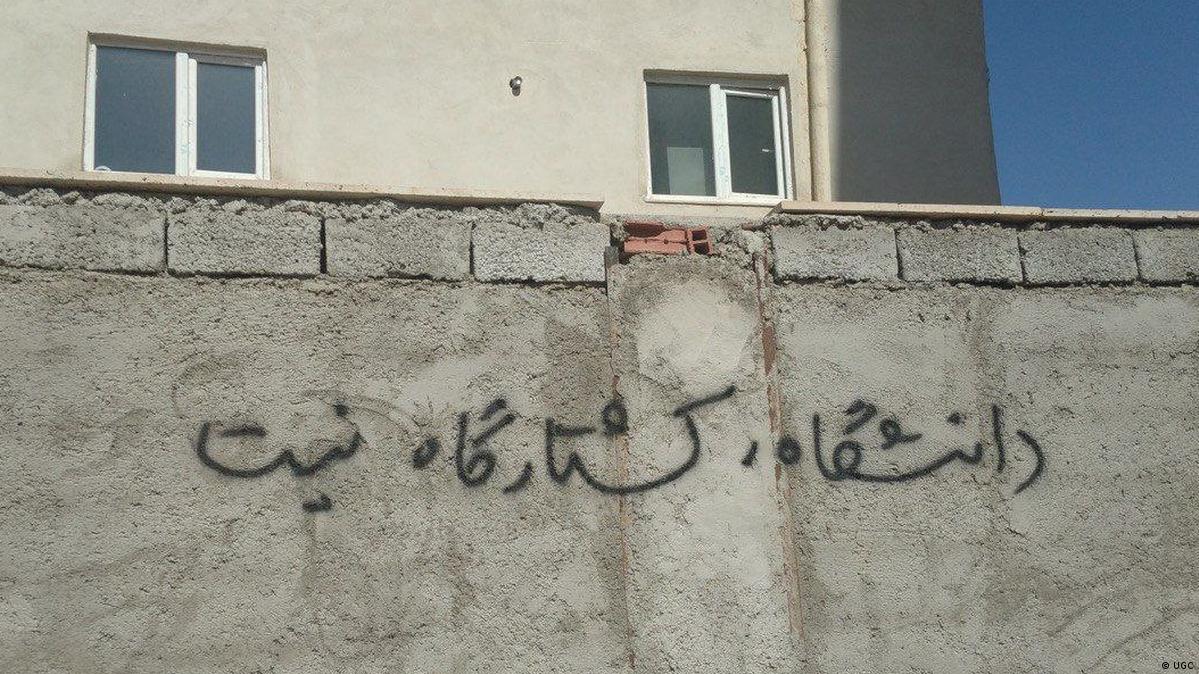 دانشگاه، کشتارگاه نیست
© UGC